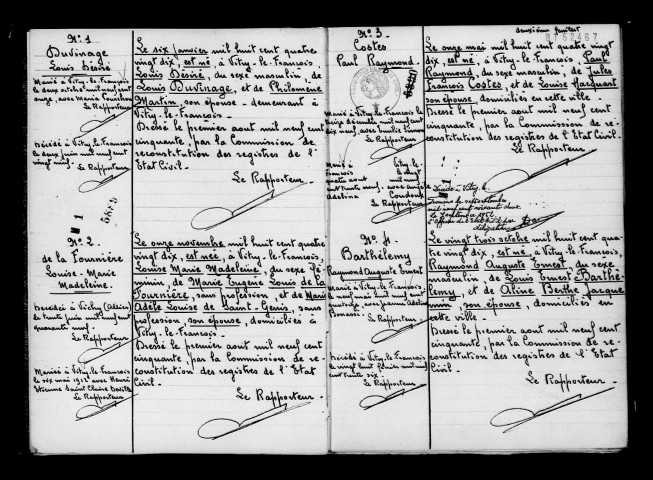 N° 1
Duvinage
Louis Désiré
Marié à Vitry-le-François
le deux octobre mil neuf cent
onze, avec Marie
Le Rapporteur
Décédé à Vitry-le-François
le deux juin mil neuf cent
vingt neuf.
Le Rapporteur
Le six janvier mil huit cent quatre
vingt dix, est né, à Vitry-le-François,
Louis Désiré, du sexe masculin, de
Louis Duvinage, et de Philomène
Martin, son épouse - demeurant à
Vitry-le-François -
Dressé le premier août mil neuf cent
cinquante, par la Commission de
reconstitution des registres de l'
Etat Civil -
Le Rapporteur -
N° 2
de la Fournière
Louise-Marie
Madeleine.
Décédée à Vichy (Allier)
le trente juin mil neuf cent
quarante neuf.
Le Rapporteur
Mariée à Vitry-le-François
le six mai 1912 avec Henri
Etienne Saint Claire Deville
Le Rapporteur
Le onze novembre mil huit cent quatre
vingt dix, est née, à Vitry-le-François,
Louise Marie Madeleine, du sexe fé-
minin, de Marie Eugène Louis de la
Fournière, sans profession, et de Marie
Adèle Louise de Saint-Genis, sans
profession, son épouse, domiciliés à
Vitry-le-François -
Dressé le premier août mil neuf cent
cinquante, par la Commission de re-
constitution des registres de l'Etat
Civil -
Le Rapporteur -
deuxième feuillet
N° 3
Costes
Paul Raymond
Marié à Vitry-le-François le
treize décembre mil neuf cent
dix neuf, avec
Le Rapporteur
Marié à Vitry-le-
François le vingt
quatre août mil neuf
cent trente neuf, avec
Le Rapporteur
Le onze mai mil huit cent quatre vingt
dix, est né, à Vitry-le-François, Paul
Raymond, du sexe masculin, de Jules
François Costes, et de Louise Hacquart
son épouse, domiciliés en cette ville -
Dressé le premier août mil neuf cent
cinquante, par la Commission de recons-
titution des registres de l'Etat Civil.
Le Rapporteur -
Décédé à Vitry-le-
François le
mil neuf cent soixante deux
L'Officier de l'Etat Civil
N° 4
Barthélemy
Raymond Auguste Ernest
Marié à Vitry-le-François, le
neuf mai mil neuf cent
quatorze, avec Jeanne
Le Rapporteur
Décédé à Vitry-le-François
le vingt huit février mil neuf
cent trente six.
Le Rapporteur
Le vingt trois octobre mil huit cent qua-
tre vingt dix, est né, à Vitry-le-François,
Raymond Auguste Ernest du sexe
masculin de Louis Ernest Barthé-
lemy, et de Aline Berthe Jacque
min, son épouse, domiciliés en
cette ville -
Dressé le premier août mil neuf cent
cinquante, par la Commission de re-
constitution des registres de l'Etat
Civil -
Le Rapporteur -